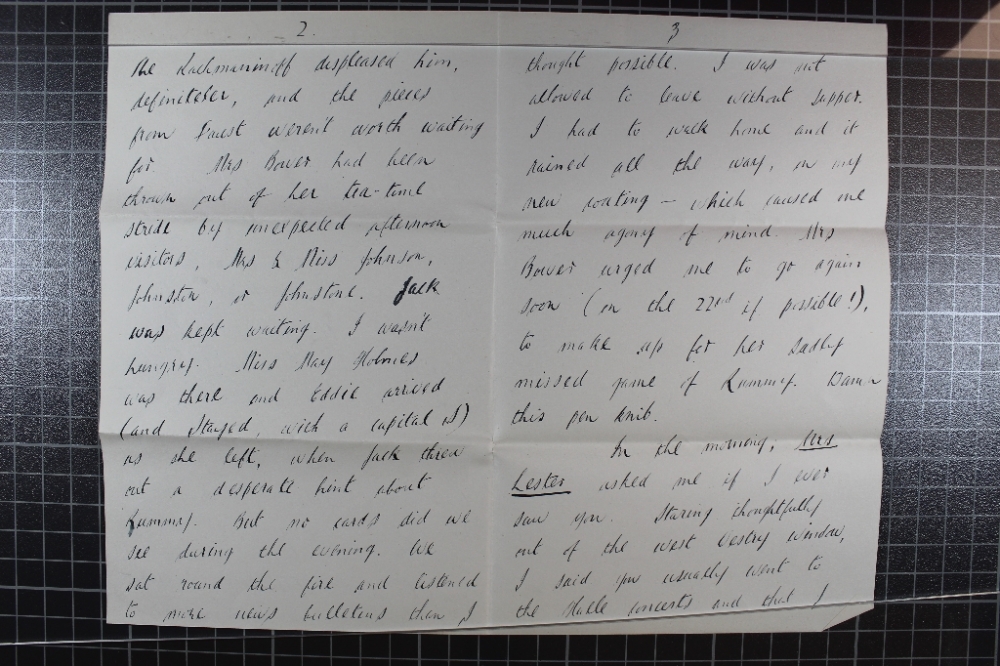 2.
the Rachmaninoff displeased him,
definitely, and the pieces
from Faust weren't worth waiting
for. Mrs Bower had been
thrown out of her tea-time
stride by unexpected afternoon
visitors, Mrs & Miss Johnson,
Johnston, or Johnstone. Jack
was kept waiting. I wasn't
hungry. Miss May Holmes
was there and Eddie arrived
(and Stayed, with a capital S)
as she left, when Jack threw
out a desperate hint about
Rummy. But no cards did we
see during the evening. We
sat round the fire and listened
to more news bulletins than I
3
thought possible. I was not
allowed to leave without supper.
I had to walk home and it
rained all the way, on my
new coating – which caused me
much agony of mind. Mrs
Bower urged me to go again
soon (on the 22nd if possible!),
to make up for her sadly
missed game of Rummy. Damn
this pen knib.
In the morning, Mrs
Lester asked me if I ever
saw you. Staring thoughtfully
out of the west vestry window,
I said you usually went to
the Halle concerts and that I